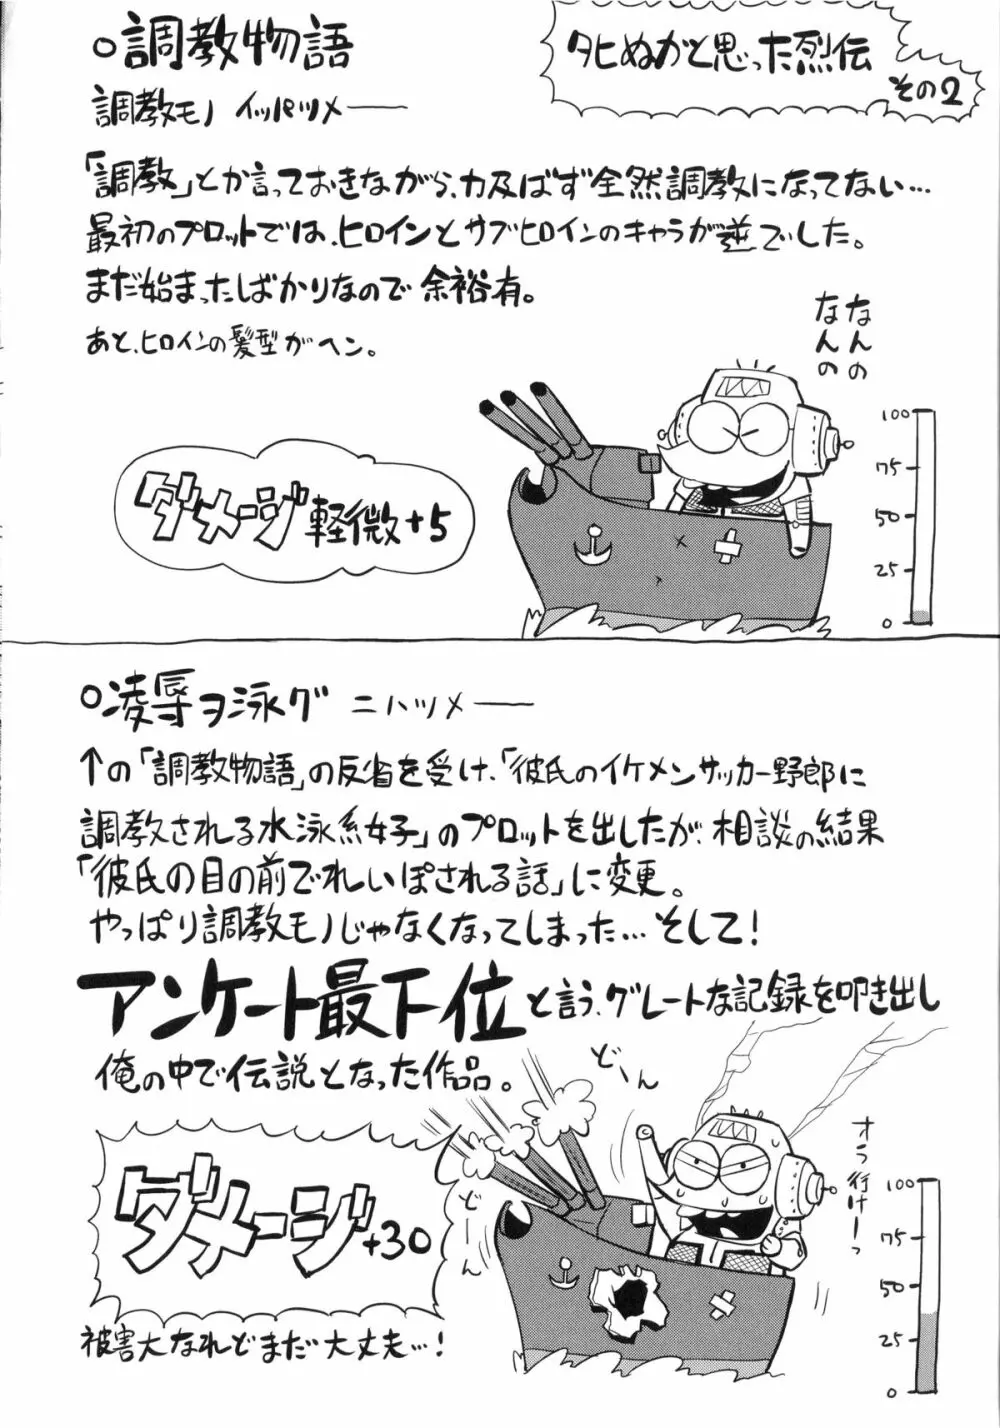 タヒぬかと思った烈伝
その2
○調教物語
調教モノ イッパツメー
「調教」とか言っておきながら、力及ばず全然調教になってない…
最初のプロットでは、ヒロインとサブヒロインのキャラが逆でした。
まだ始まったばかりなので余裕有。
あと、ヒロインの髪型がヘン。
なんの
なんの
ダメージ軽微+5
100
75
50
25
0
○凌辱ヲ泳グ ニハツメー
↑の「調教物語」の反省を受け、「彼氏のイケメンサッカー野郎に
調教される水泳系女子」のプロットを出したが、相談の結果
「彼氏の目の前でれいぽされる話」に変更。
やっぱり調教モノじゃなくなってしまった…そして!
アンケート最下位と言う、グレートな記録を叩き出し
俺の中で伝説となった作品。
どーん
どーん
オラ行けーっ
ダメージ+30
被害大なれどまだ大丈夫…!
100
75
50
25
0